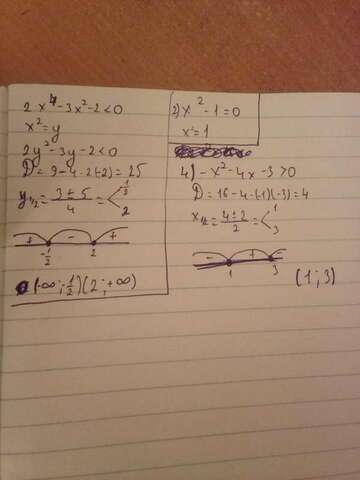 2x⁴-3x²-2<0
x²=y
2y²-3y-2<0
D=9-4·2(-2)=25
y₁/₂=3±5/4=< 1/2
2
+ - +
-1/2 2
(-∞;-1/2)(2;+∞)
2) x²-1=0
x=1
4) -x²-4x-3>0
D=16-4·(-1)(-3)=4
x₁/₂=4±2/2=< 1
3
- + -
1 3
(1;3)